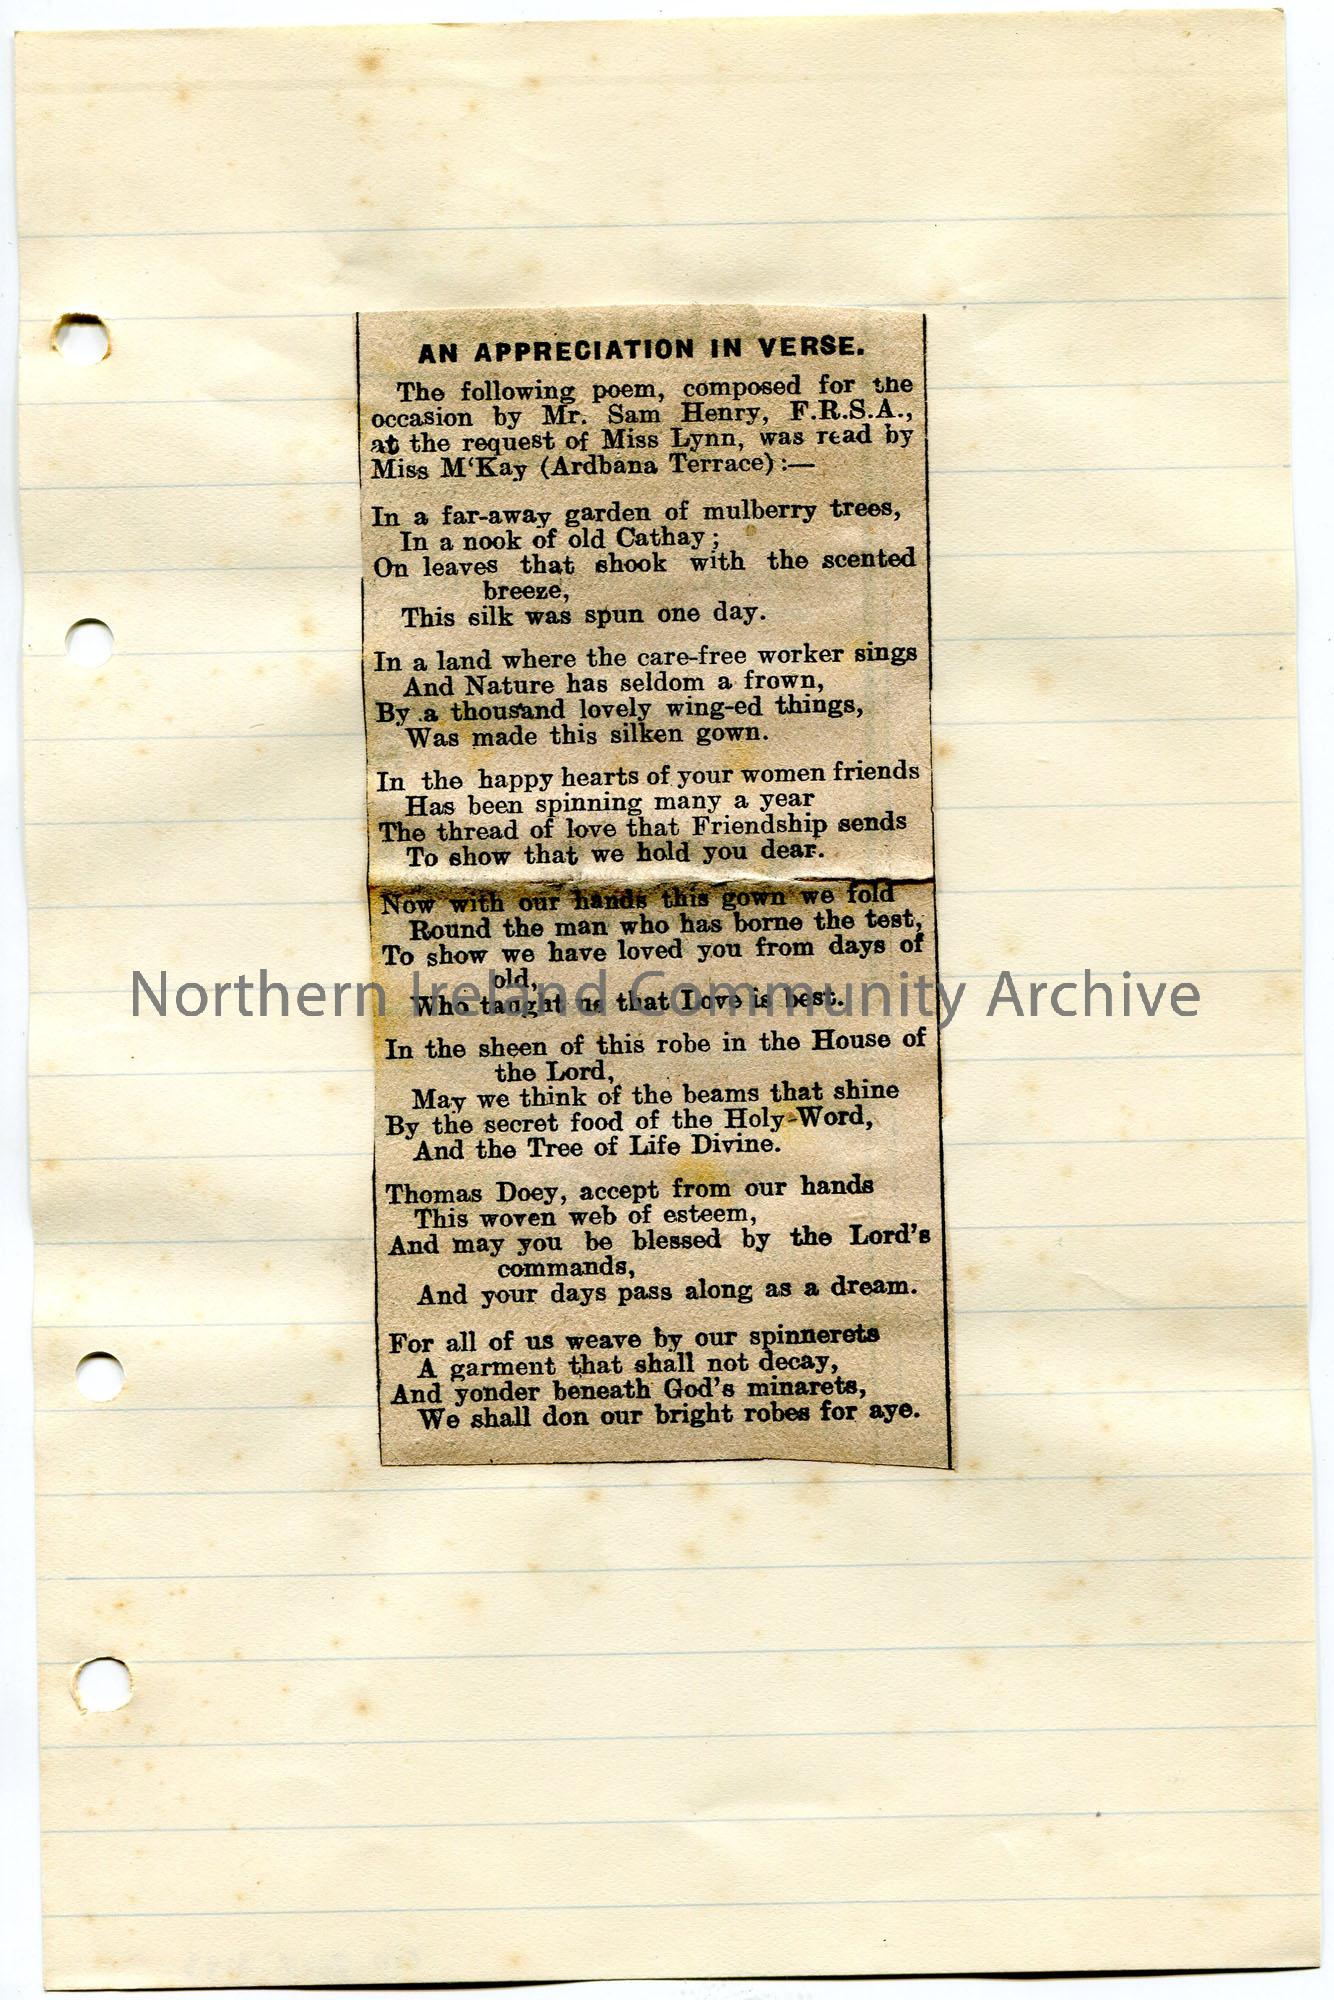 AN APPRECIATION IN VERSE.
The following poem, composed for the
occasion by Mr. Sam Henry, F.R.S.A.,
at the request of Miss Lynn, was read by
Miss M‘Kay (Ardbana Terrace):—
In a far-away garden of mulberry trees,
In a nook of old Cathay;
On leaves that shook with the scented
breeze,
This silk was spun one day.
In a land where the care-free worker sings
And Nature has seldom a frown,
By a thousand lovely wing-ed things,
Was made this silken gown.
In the happy hearts of your women friends
Has been spinning many a year
The thread of love that Friendship sends
To show that we hold you dear.
Now with our hands this gown we fold
Round the man who has borne the test,
To show we have loved you from days of
old,
Who taught us that Love is best.
Northern Ireland Community Archive
In the sheen of this robe in the House of
the Lord,
May we think of the beams that shine
By the secret food of the Holy-Word,
And the Tree of Life Divine.
Thomas Doey, accept from our hands
This woven web of esteem,
And may you be blessed by the Lord's
commands,
And your days pass along as a dream.
For all of us weave by our spinnerets
A garment that shall not decay,
And yonder beneath God's minarets,
We shall don our bright robes for aye.